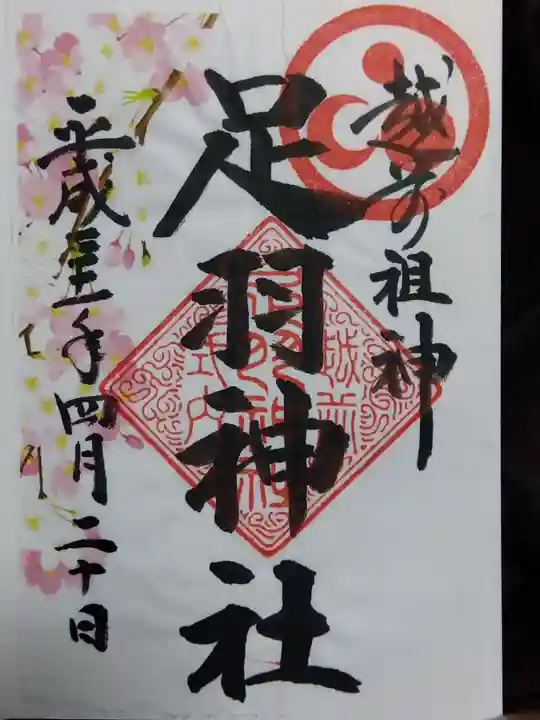 越前の祖神
足羽神社
平成三十一年四月二十日
越前
式内